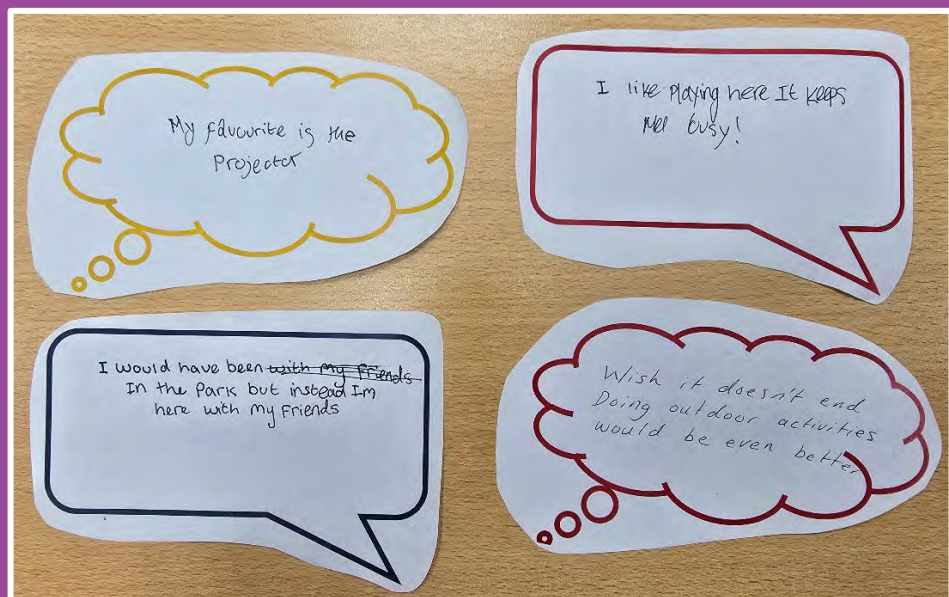 My favourite is the
Projector
I like playing here It keeps
me busy!
I would have been with my Friends
In the Park but instead I'm
here with my Friends
Wish it doesn't end
Doing outdoor activities
would be even better